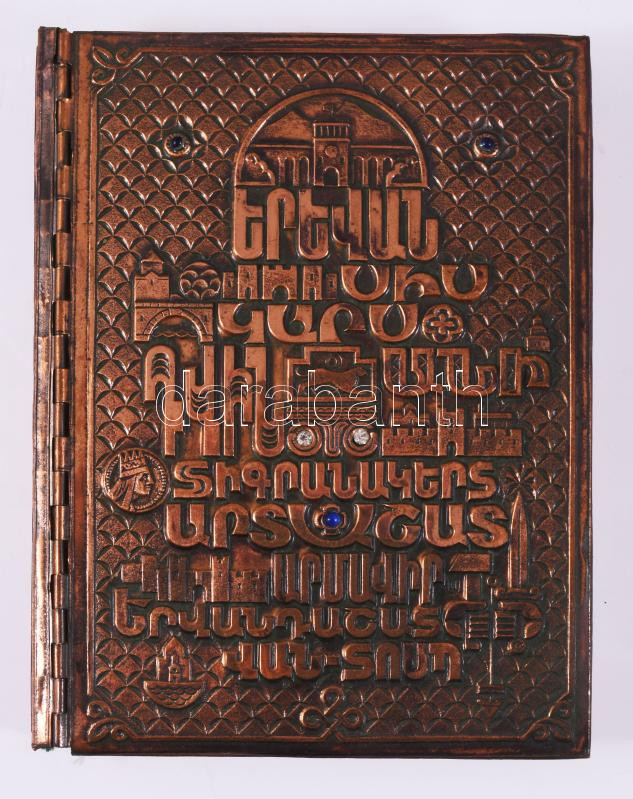 ԵՐԵՎԱՆ
ՍԻՍ
ԿԱՐՍ
ԴՎԻՆ ԱՆԻ
darabanth
ՏԻԳՐԱՆԱԿԵՐՏ
ԱՐՏԱՇԱՏ
ԱՐՄԱՎԻՐ
ԵՐՎԱՆԴԱՇԱՏ
ՎԱՆ-ՏՈՍՊ